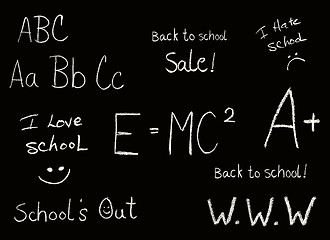 ABC
Aa Bb Cc
Back to school
Sale!
I Hate
school
I Love
school
E = MC²
A+
Back to school!
School's Out
W.W.W